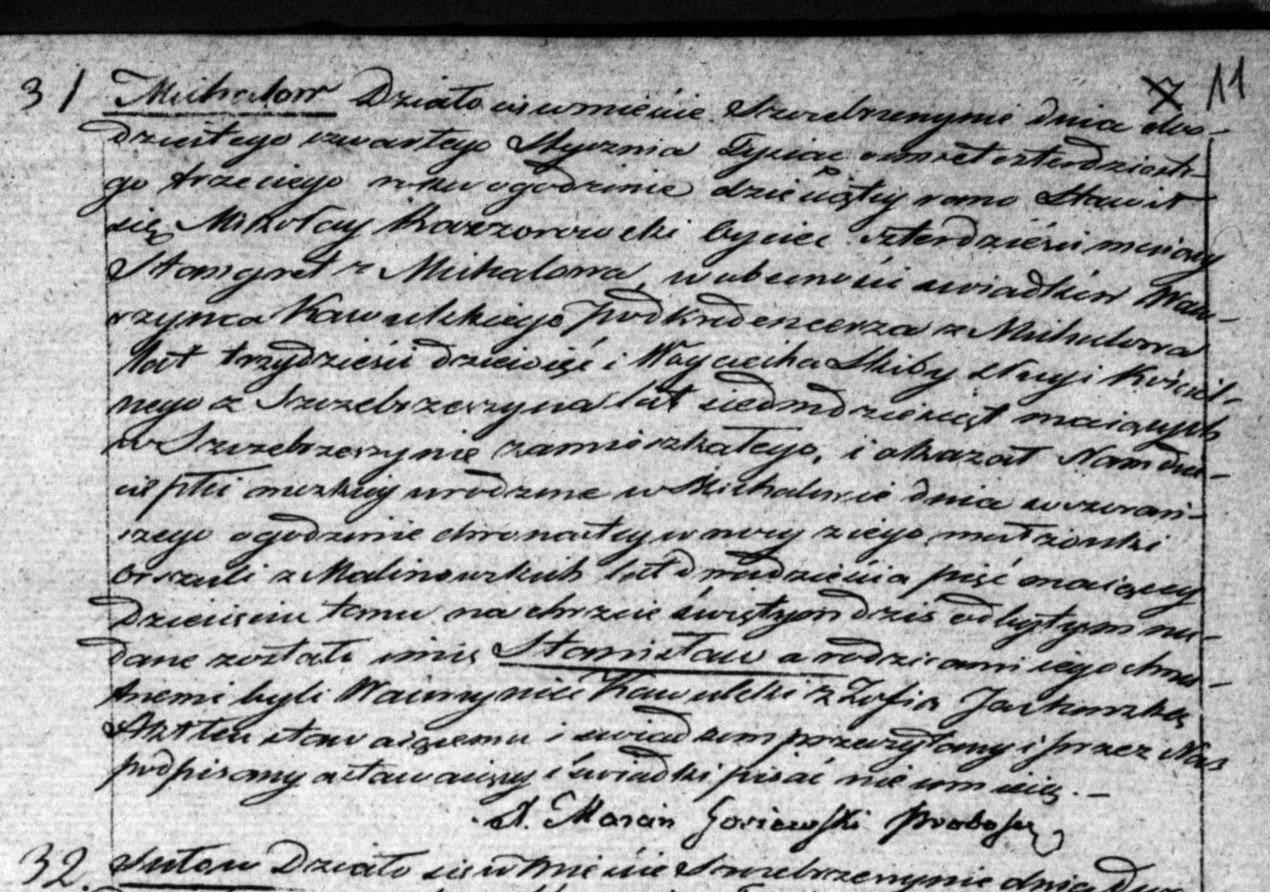 11
31 Michalow Działo się w mieście Szczebrzeszynie dnia dwu-
dziestego czwartego Stycznia Tysiąc ośmset czterdzieste-
go trzeciego roku o godzinie dziewiątey rano Stawił
się Mikołay Kaczorowski lat czterdzieści maiący
Stangret z Michalowa, w obecności świadków Waw-
rzynca Kawulskiego Podkredencerza z Michalowa
lat trzydzieści dziewięć i Woyciecha Skiby sługi Kościel-
nego z Szczebrzeszyna lat siedmdziesiąt maiących
w Szczebrzeszynie zamieszkałego, i okazał Nam dzie-
cie płci męzkiey urodzone w Michalowie dnia wczoray-
szego o godzinie dwonastey w nocy z iego małżonki
Urszuli z Malinowskich lat dwadzieścia pięć maiącey
Dziecięciu temu na chrzcie świętym dziś odbytym na-
dane zostało imię Stanisław a rodzicami iego chrze-
stnemi byli Wawrzyniec Kawulski z Zofią Jaskowską
Akt ten stawaiącemu i świadkom przeczytany i przez Nas
podpisany a stawaiący i świadki pisać nie umieią. –
X. Marcin Goriewski Proboszcz
32. Sułow Działo się w mieście Szczebrzeszynie dnia